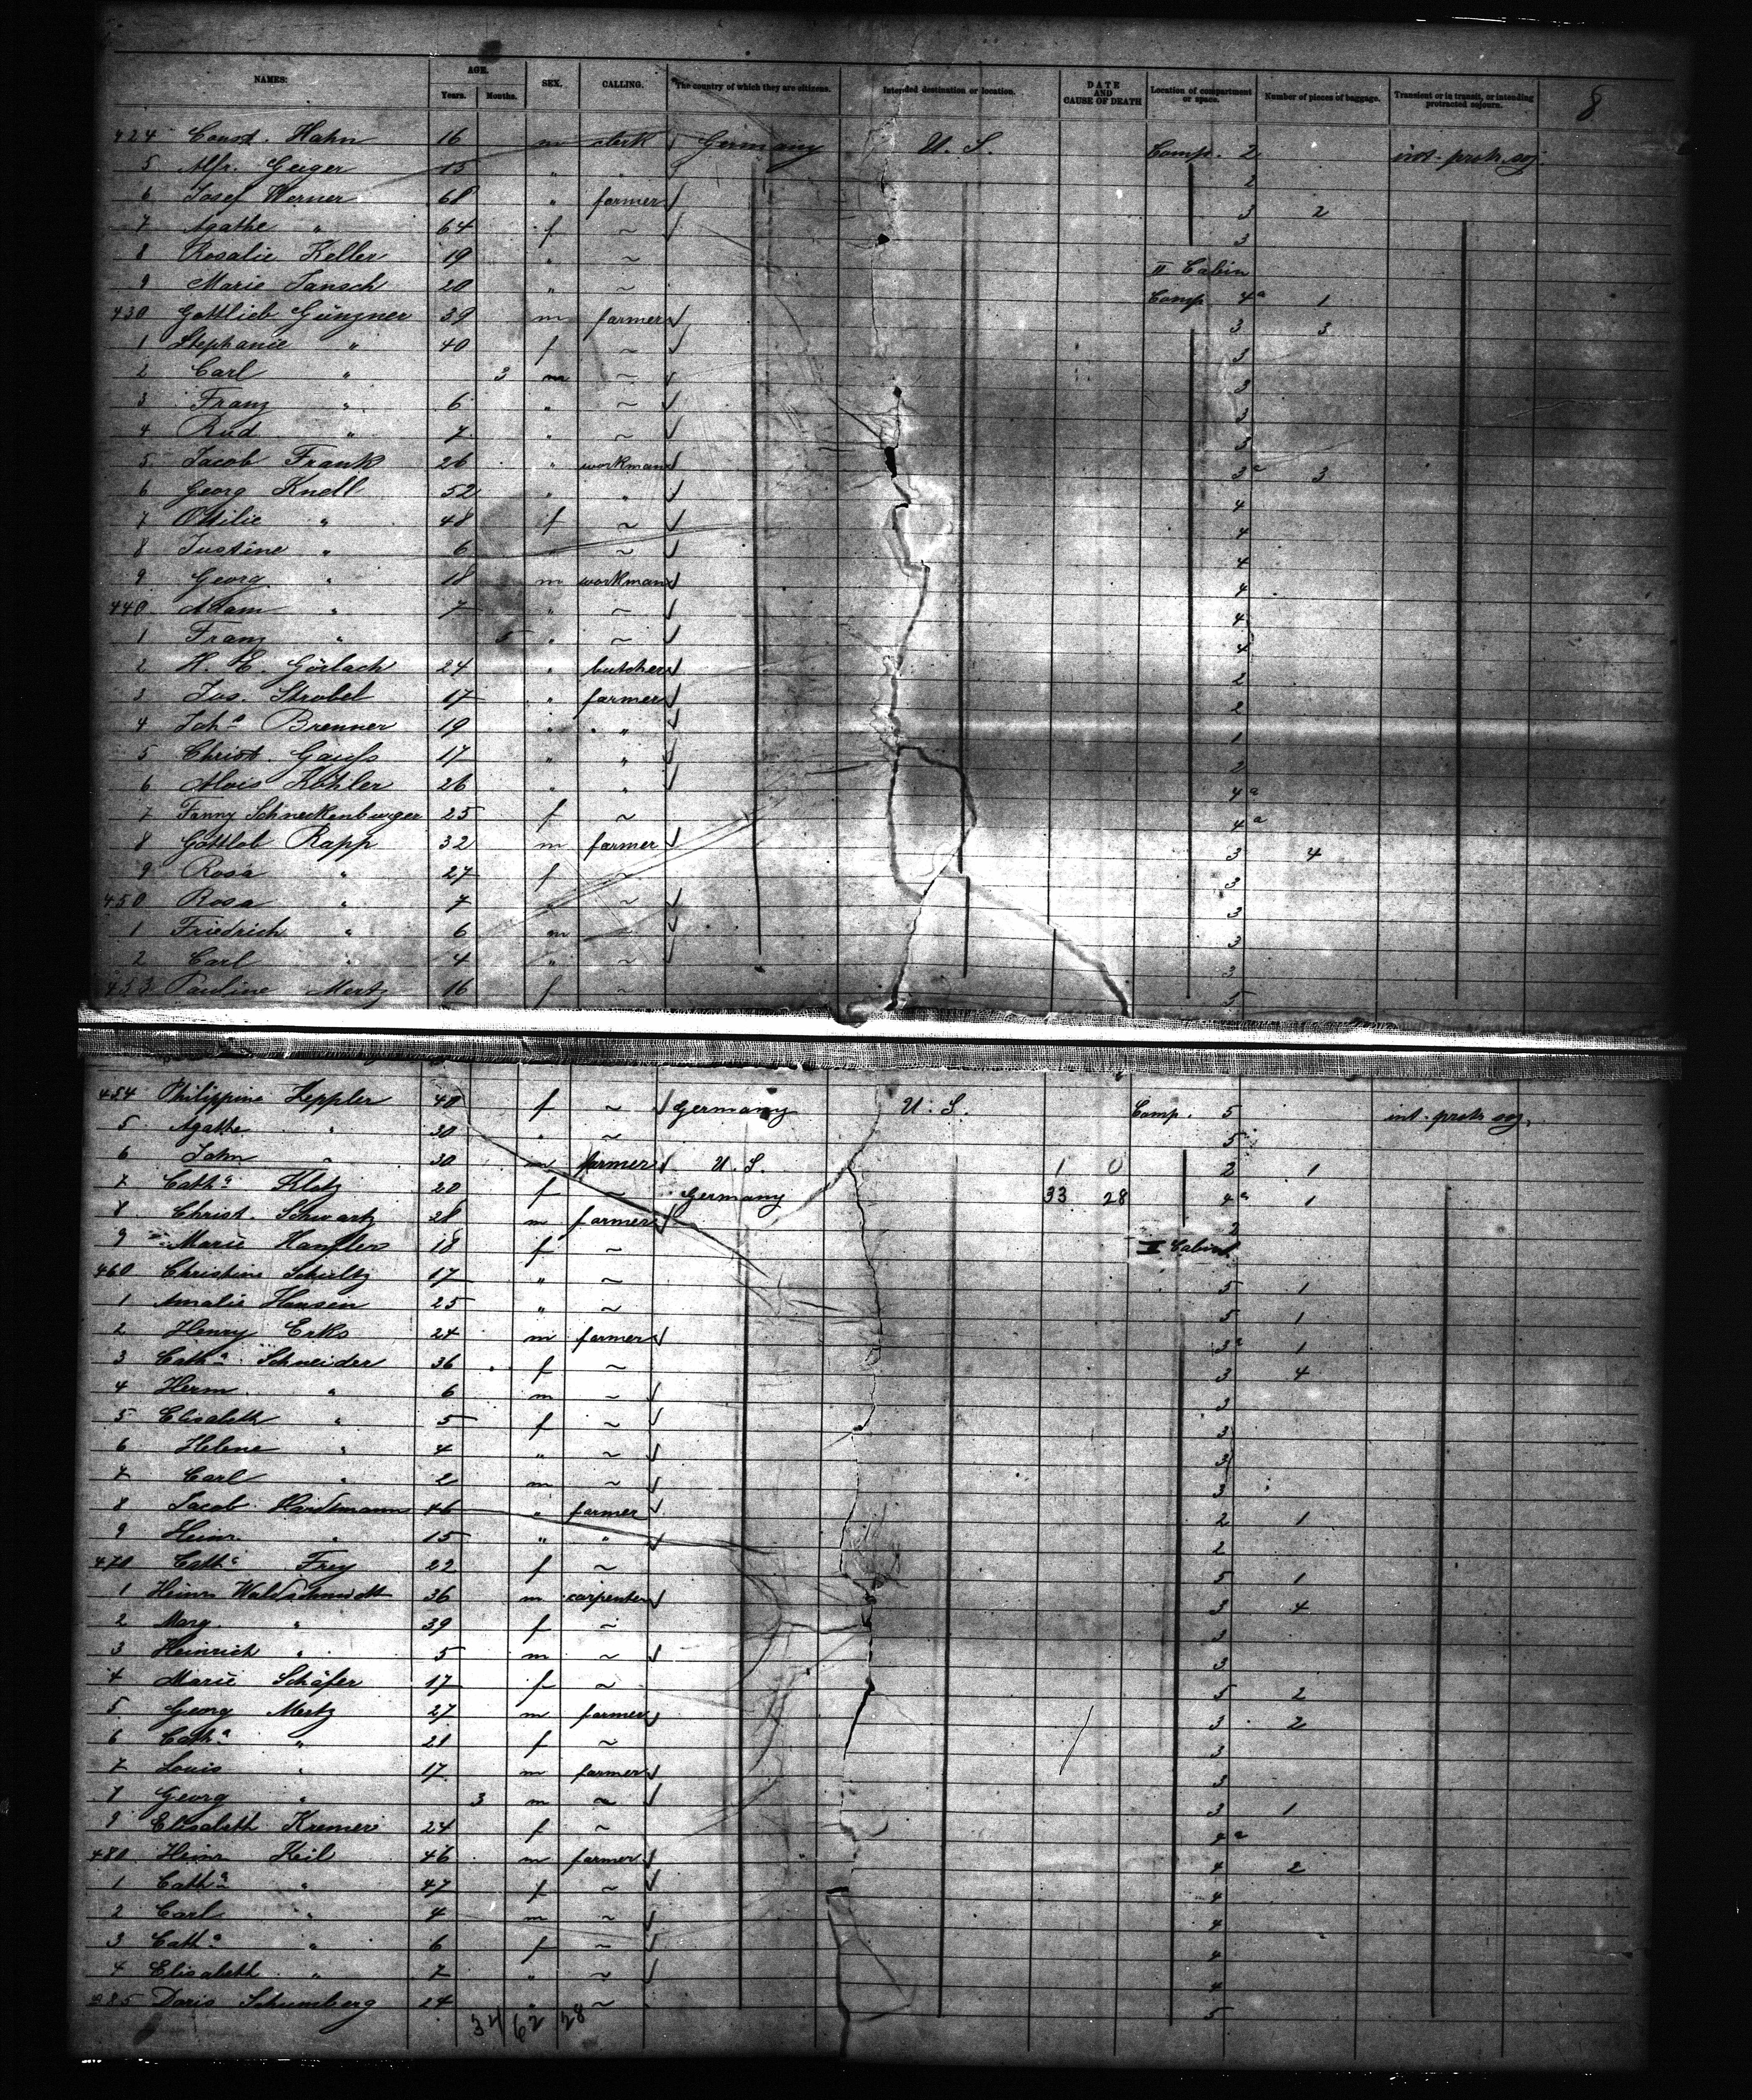 NAMES: AGE. Years. Months. SEX. CALLING. The country of which they are citizens. Intended destination or location. DATE AND CAUSE OF DEATH Location of compartment or space. Number of pieces of baggage. Transient or in transit, or intending protracted sojourn. 8
424 Const. Hahn 16 m clerk Germany U. S. Comp. 2 int. protr. soj.
5 Alfr. Geiger 15 " " 2
6 Josef Werner 68 " farmer 3 2
7 Agathe " 64 f ~ 3
8 Rosalie Keller 19 " ~ II Cabin
9 Marie Jansch 20 " ~ Comp. 4a 1
430 Gottlieb Günzner 39 m farmer 3 3
1 Stephanie " 40 f ~ 3
2 Carl " 3 m ~ 3
3 Franz " 6 " ~ 3
4 Rud. " 7 " ~ 3
5 Jacob Frank 26 " workman 3a 3
6 Georg Knell 52 " " 4
7 Ottilie " 48 f ~ 4
8 Justine " 6 " ~ 4
9 Georg " 18 m workman 4
440 Adam " 7 " ~ 4
1 Franz " 5 " ~ 4
2 H. E. Görlach 24 " butcher 2
3 Jos. Strobel 17 " farmer 2
4 Joha Brenner 19 " " 1
5 Christ. Gauss 17 " " 2
6 Alois Köhler 26 " " 4a
7 Fanny Schneckenburger 25 f ~ 4a
8 Gottlob Rapp 32 m farmer 3 4
9 Rosa " 27 f ~ 3
450 Rosa " 7 " ~ 3
1 Friedrich " 6 m ~ 3
2 Carl " 4 " ~ 3
453 Pauline Mertz 16 f ~ 5
454 Philippine Heppler 40 f ~ Germany U. S. Comp. 5 int. protr. soj.
5 Agathe " 30 " ~ 5
6 John " 30 m farmer U. S. 1 0 2 1
7 Catha Klotz 20 f ~ Germany 33 28 4a 1
8 Christ. Schwartz 28 m farmer 2
9 Marie 18 f ~ II Cabin
460 Christine Schultz 17 " ~ 5 1
1 Amalie Hansen 25 " ~ 5 1
2 Henry Erks 24 m farmer 3a 1
3 Catha Schneider 36 f ~ 3 4
4 Herm. " 6 m ~ 3
5 Elisabeth " 5 f ~ 3
6 Helene " 4 " ~ 3
7 Carl " 2 m ~ 3
8 Jacob Hardtmann 46 " farmer 2 1
9 Heinr. " 15 " " 2
470 Catha Frey 22 f ~ 5 1
1 Heinr. Waldschmidt 36 m carpenter 3 4
2 Marg. " 39 f ~ 3
3 Heinrich " 5 m ~ 3
4 Marie Schäfer 17 f ~ 5 2
5 Georg Mertz 27 m farmer 3 2
6 Catha " 21 f ~ 3
7 Louis " 17 m farmer 3
8 Georg " 3 m ~ 3 1
9 Elisabeth Kremer 24 f ~ 4a
480 Heinr. Keil 46 m farmer 4 2
1 Catha " 47 f ~ 4
2 Carl " 4 m ~ 4
3 Catha " 6 f ~ 4
4 Elisabeth " 7 " ~ 4
485 Doris Schumberg 24 " ~ 5
34 / 62 / 28